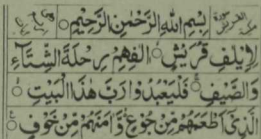 بِسْمِ اللّٰهِ الرَّحْمٰنِ الرَّحِيْمِ
لِاِيْلٰفِ قُرَيْشٍ اٖلٰفِهِمْ رِحْلَةَ الشِّتَآءِ
وَالصَّيْفِ فَلْيَعْبُدُوْا رَبَّ هٰذَا الْبَيْتِ
الَّذِيْٓ اَطْعَمَهُمْ مِّنْ جُوْعٍ وَّاٰمَنَهُمْ مِّنْ خَوْفٍ